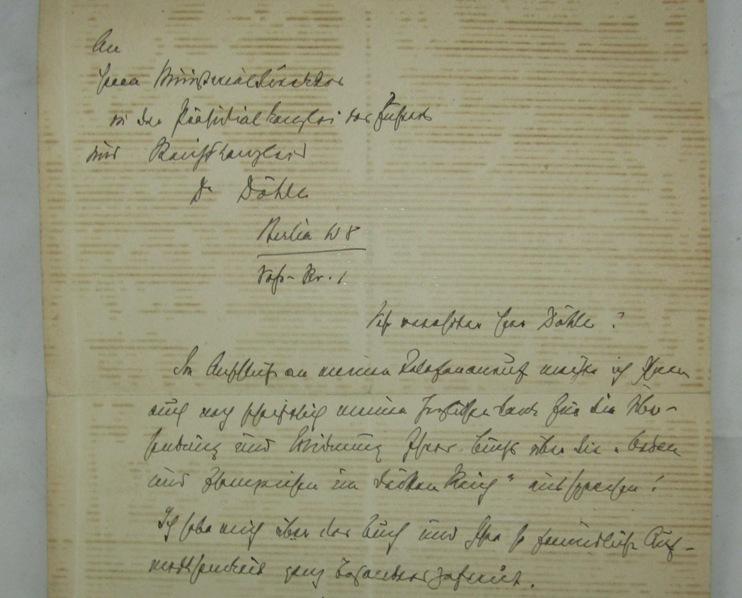 An
Herrn Ministerialdirektor
in der Präsidialkanzlei des Führers
und Reichskanzlers
Dr Döhle
Berlin W 8
Voß-Str. 1
Sehr verehrter Herr Döhle!
Im Anschluß an meinen Telefonanruf möchte ich Ihnen
auch noch schriftlich meinen herzlichen Dank für die Über-
sendung und Widmung Ihres Buchs über die "Orden
und Ehrenzeichen im Dritten Reich" aussprechen!
Ich habe mich über das Buch und Ihre so freundliche Auf-
merksamkeit ganz besonders gefreut.